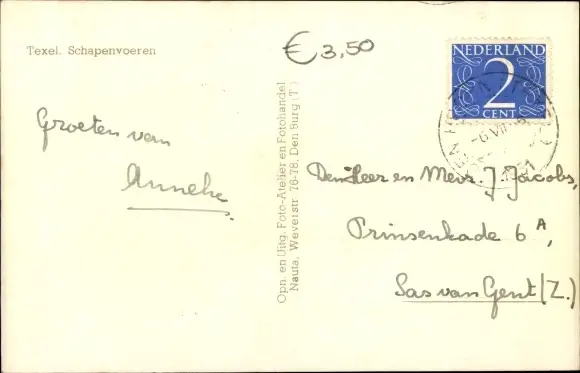 Texel. Schapenvoeren
€ 3,50
Groeten van
Anneke
Opn. en Uitg. Foto-Atelier en Fotohandel
Nauta, Weverstr 76-78, Den Burg (T.)
NEDERLAND
2
CENT
-6 VII
Den Heer en Mevr. J. Jacobs,
Prinsenkade 6 A,
Sas van Gent (Z.)